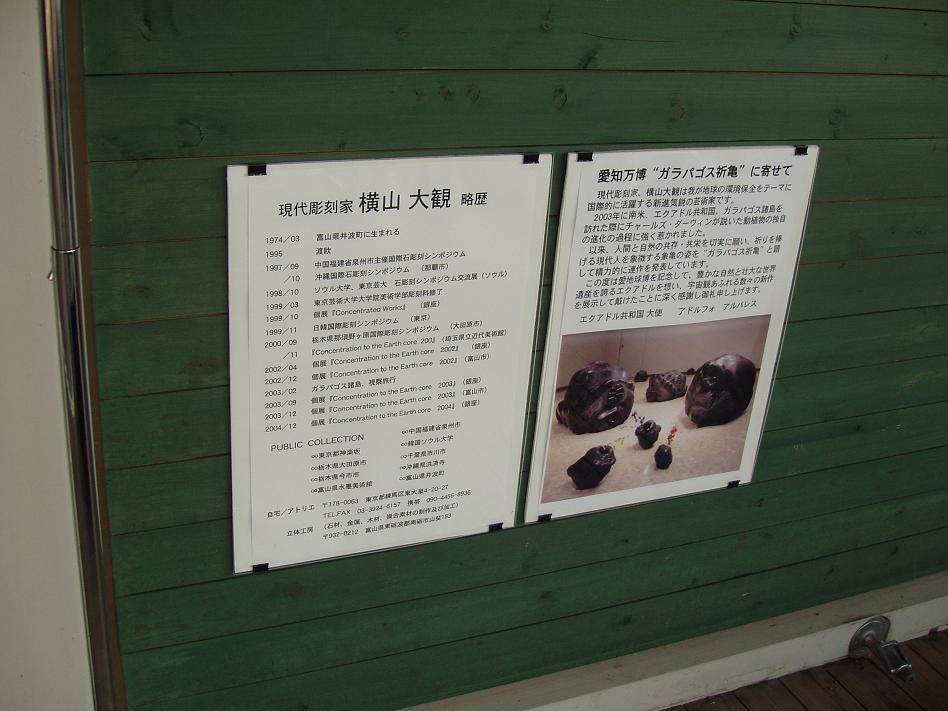 現代彫刻家 横山 大観 略歴
1974/03 富山県井波町に生まれる
1995 渡欧
1997/09 中国福建省泉州市主催国際石彫刻シンポジウム
/10 沖縄国際石彫刻シンポジウム (那覇市)
1998/10 ソウル大学、東京芸大 石彫刻シンポジウム交流展(ソウル)
1999/03 東京芸術大学大学院美術学部彫刻科修了
1999/10 個展『Concentrated Works』 (銀座)
1999/11 日韓国際彫刻シンポジウム (東京)
2000/09 栃木県那須野ヶ原国際彫刻シンポジウム (大田原市)
/11 『Concentration to the Earth core 200』(埼玉県立近代美術館)
2002/04 個展『Concentration to the Earth core 2002』 (銀座)
2002/12 個展『Concentration to the Earth core 2002』(富山市)
2003/02 ガラパゴス諸島、視察旅行
2003/09 個展『Concentration to the Earth core 2003』(銀座)
2003/12 個展『Concentration to the Earth core 2003』(富山市)
2004/12 個展『Concentration to the Earth core 2004』(銀座)
PUBLIC COLLECTION
∞東京都神楽坂
∞栃木県大田原市
∞栃木県今市市
∞富山県水墨美術館
∞中国福建省泉州市
∞韓国ソウル大学
∞千葉県市川市
∞沖縄県浜清寺
∞富山県井波町
自宅/アトリエ 〒178-0063 東京都練馬区東大泉4-20-27
TEL,FAX 03-3924-6157 携帯 090-4456-8936
立体工房 (石材、金属、木材、複合素材の制作及び加工)
〒932-0212 富山県東砺波郡南砺市山斐183
愛知万博“ガラパゴス祈亀”に寄せて
現代彫刻家、横山大観は我が地球の環境保全をテーマに
国際的に活躍する新進気鋭の芸術家です。
2003年に南米、エクアドル共和国、ガラパゴス諸島を
訪れた際にチャールズ・ダーウィンが説いた動植物の独自
の進化の過程に強く惹かれました。
以来、人間と自然の共存・共栄を切実に願い、祈りを捧
げる現代人を象徴する象亀の姿を“ガラパゴス祈亀”と題
して精力的に連作を発表しています。
この度は愛地球博を記念して、豊かな自然と壮大な世界
遺産を誇るエクアドルを想い、宇宙観あふれる数々の新作
を展示して戴けたことに深く感謝し御礼申し上げます。
エクアドル共和国 大使 アドルフォ アルバレス